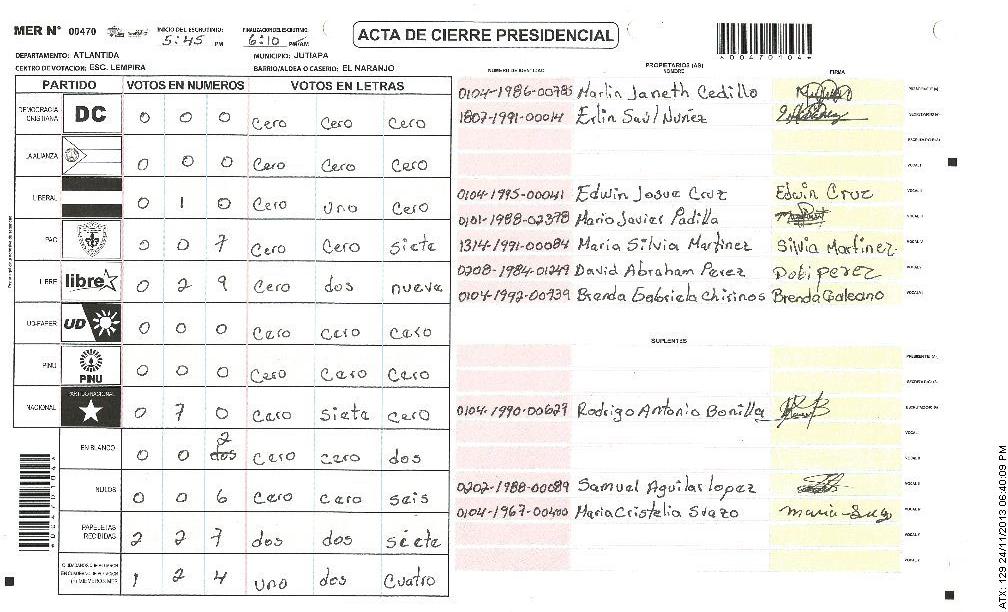 MER N° 00470
INICIO DEL ESCRUTINIO: 5:45 PM
FINALIZACION DEL ESCRUTINIO: 6:10 PM/AM
ACTA DE CIERRE PRESIDENCIAL
DEPARTAMENTO: ATLANTIDA
MUNICIPIO: JUTIAPA
CENTRO DE VOTACION: ESC. LEMPIRA
BARRIO/ALDEA O CASERIO: EL NARANJO
PARTIDO VOTOS EN NUMEROS VOTOS EN LETRAS
DEMOCRACIA CRISTIANA DC 0 0 0 Cero Cero Cero
LA ALIANZA 0 0 0 Cero Cero Cero
LIBERAL 0 1 0 Cero uno Cero
PAC 0 0 7 Cero Cero Siete
LIBRE libre 0 2 9 Cero dos nueve
UD-FAPER UD 0 0 0 Cero Cero Cero
PINU PINU 0 0 0 Cero Cero Cero
NACIONAL PARTIDO NACIONAL 0 7 0 Cero Siete Cero
EN BLANCO 0 0 dos 2 Cero Cero dos
NULOS 0 0 6 Cero Cero seis
PAPELETAS RECIBIDAS 2 2 7 dos dos siete
1 2 4 uno dos Cuatro
*00470104*
NUMERO DE IDENTIDAD
PROPIETARIOS (AS)
NOMBRE
FIRMA
0104-1986-00785 Marlin Janeth Cedillo
1807-1991-00014 Erlin Saúl Nuñez
0104-1995-00041 Edwin Josue Cruz Edwin Cruz
0101-1988-02378 Mario Javier Padilla
1314-1991-00084 Maria Silvia Martinez Silvia Martinez
0208-1984-01249 David Abraham Perez
0104-1992-00739 Brenda Gabriela Chirinos Brenda Galeano
SUPLENTES
0104-1990-00629 Rodrigo Antonio Bonilla
0202-1988-00089 Samuel Aguilar lopez
0104-1967-00400 Maria Cristelia Suazo
ATX: 129 24/11/2013 06:40:09 PM